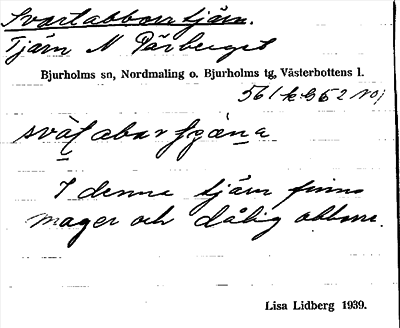 Svartabborrtjärn.
Tjärn N Pärberget
Bjurholms sn, Nordmaling o. Bjurholms tg, Västerbottens l.
I denna tjärn finns
mager och dålig abborre.
Lisa Lidberg 1939.